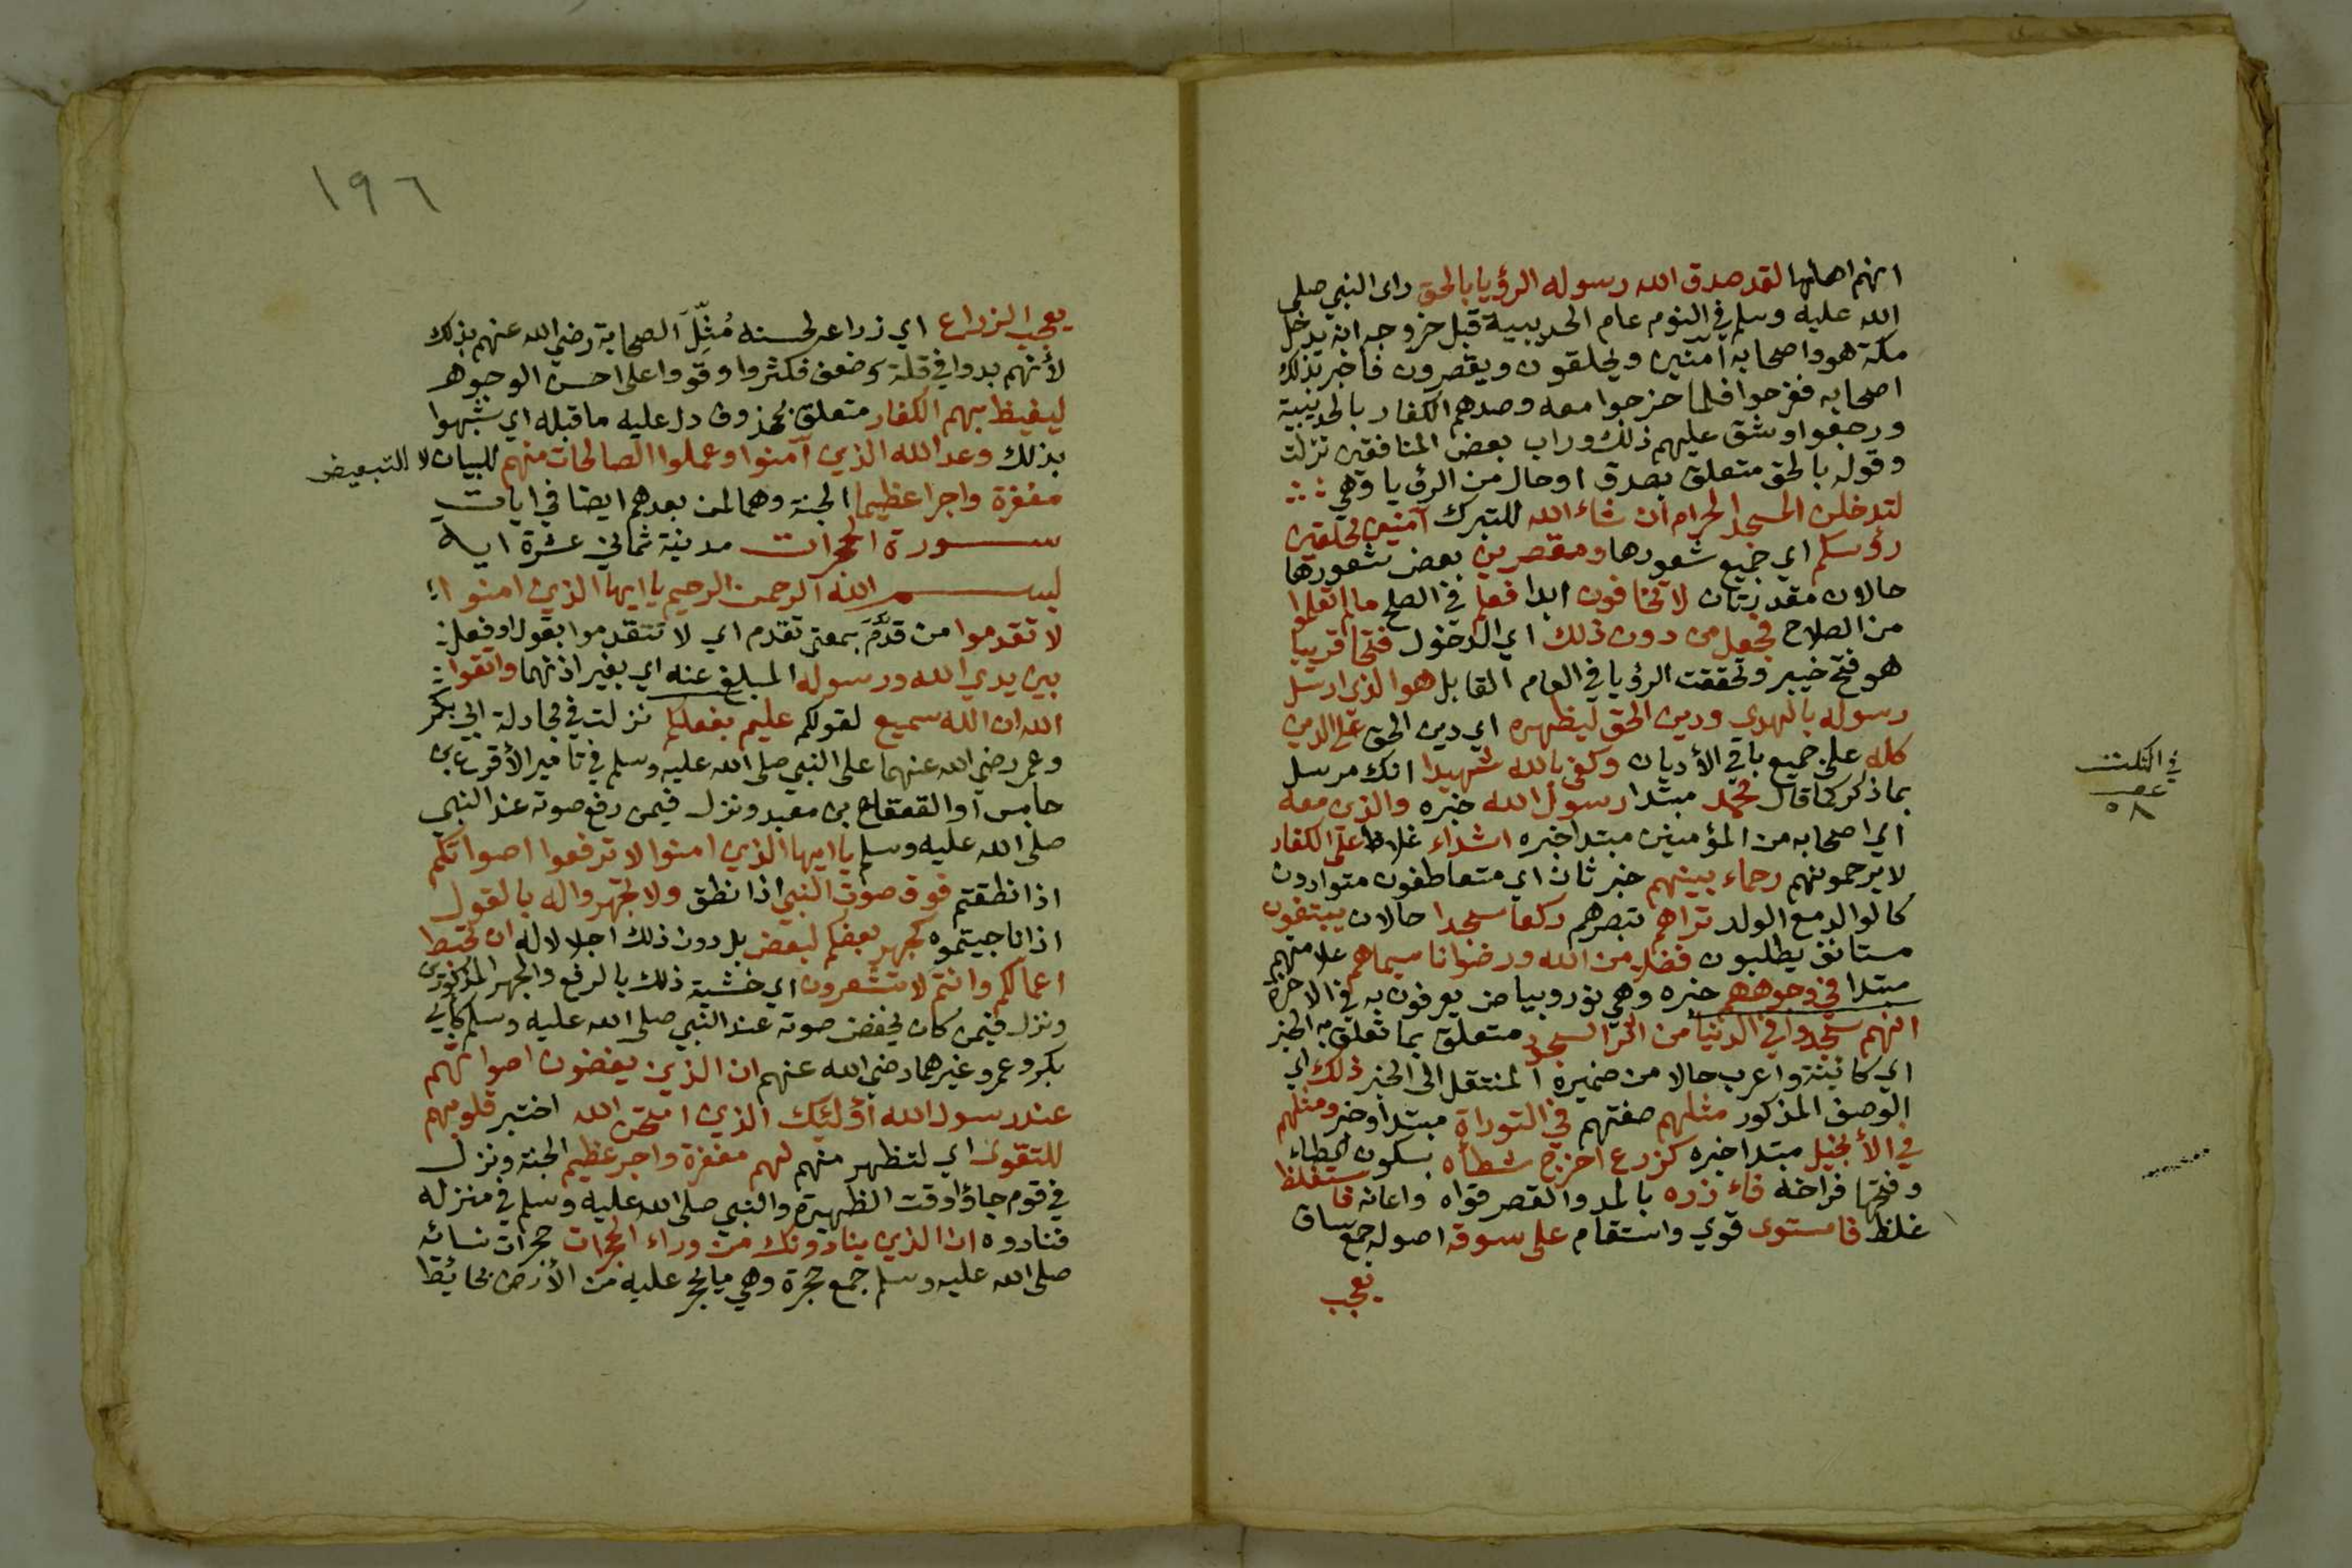 انهم اهلها لقد صدق الله رسوله الرؤيا بالحق راى النبي صلى
الله عليه وسلم في النوم عام الحديبية قبل خروجه انه يدخل
مكة هو واصحابه آمنين ويحلقون ويقصرون فاخبر بذلك
اصحابه ففرحوا فلما خرجوا معه وصدهم الكفار بالحديبية
ورجعوا وشق عليهم ذلك وراب بعض المنافقين نزلت
وقوله بالحق متعلق بصدق او حال من الرؤيا وهي
لتدخلن المسجد الحرام ان شاء الله للتبرك آمنين محلقين
رؤسكم اي جميع شعورها ومقصرين بعض شعورها
حالان مقدرتان لا تخافون ابدا فعلم في الصلح ما لم تعلموا
من الصلاح فجعل من دون ذلك اي الدخول فتحا قريبا
هو فتح خيبر وتحققت الرؤيا في العام القابل هو الذي ارسل
رسوله بالهدى ودين الحق ليظهره اي دين الحق على الدين
كله على جميع باقي الأديان وكفى بالله شهيدا انك مرسل
بما ذكر كما قال محمد مبتدا رسول الله خبره والذين معه
اي اصحابه من المؤمنين مبتدا خبره اشداء غلاظ على الكفار
لا يرحمونهم رحماء بينهم خبر ثان اي متعاطفون متوادون
كالوالد مع الولد تراهم تبصرهم ركعا سجدا حالان يبتغون
مستانف يطلبون فضلا من الله ورضوانا سيماهم علامتهم
مبتدا في وجوههم خبره وهي نور وبياض يعرفون به في الاخرة
انهم سجدوا في الدنيا من اثر السجود متعلق بما تعلق به الخبر
اي كائنة واعرب حالا من ضميره المنتقل الى الخبر ذلك اي
الوصف المذكور مثلهم صفتهم في التوراة مبتدا وخبر ومثلهم
في الأنجيل مبتدا خبره كزرع اخرج شطأه بسكون الطاء
وفتحها فراخه فاء زره بالمد والقصر قواه واعانه فاستغلظ
غلظ فاستوى قوي واستقام على سوقه اصوله جمع ساق
يعجب
في الثلث
عفـ
٥٨
١٩٦
يعجب الزراع اي زراعه لحسنه مُثِّلَ الصحابة رضي الله عنهم بذلك
لأنهم بدوا في قلة وضعف فكثروا وقووا على احسن الوجوه
ليغيظ بهم الكفار متعلق بمحذوف دل عليه ما قبله اي شبهوا
بذلك وعد الله الذين آمنوا وعملوا الصالحات منهم للبيان لا للتبعيض
مغفرة واجرا عظيما الجنة وهما لمن بعدهم ايضا في ايات
سورة الحجرات مدنية ثماني عشرة اية
بسم الله الرحمن الرحيم يا ايها الذين امنوا
لا تقدموا من قدَّمَ بمعنى تقدم اي لا تتقدموا بقول او فعل
بين يدي الله ورسوله المبلغ عنه اي بغير اذنهما واتقوا
الله ان الله سميع لقولكم عليم بفعلكم نزلت في مجادلة ابي بكر
وعمر رضي الله عنهما على النبي صلى الله عليه وسلم في تامير الأقرع بن
حابس او القعقاع بن معبد ونزل فيمن رفع صوته عند النبي
صلى الله عليه وسلم يا ايها الذين امنوا لا ترفعوا اصواتكم
اذا نطقتم فوق صوت النبي اذا نطق ولا تجهروا له بالقول
اذا ناجيتموه كجهر بعضكم لبعض بل دون ذلك اجلالا له ان تحبط
اعمالكم وانتم لا تشعرون اي خشية ذلك بالرفع والجهر المذكورين
ونزل فيمن كان يخفض صوته عند النبي صلى الله عليه وسلم كابي
بكر وعمر وغيرهما رضي الله عنهم ان الذين يغضون اصواتهم
عند رسول الله أولئك الذين امتحن الله اختبر قلوبهم
للتقوى اي لتظهر منهم لهم مغفرة واجر عظيم الجنة ونزل
في قوم جاؤا وقت الظهيرة والنبي صلى الله عليه وسلم في منزله
فنادوه ان الذين ينادونك من وراء الحجرات حجرات نسائه
صلى الله عليه وسلم جمع حجرة وهي ما يحجر عليه من الأرض بحائط